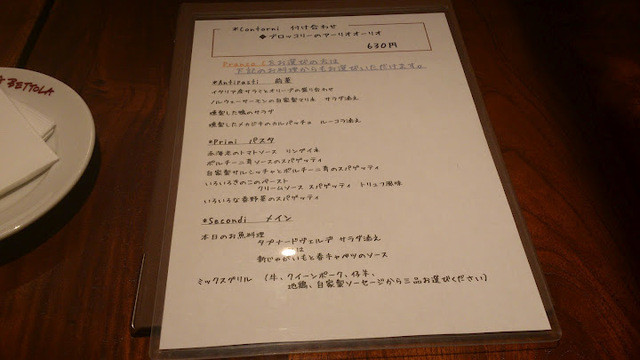 *Contorni 付け合わせ
◆ブロッコリーのアーリオオーリオ
630円
Pranzo Cをお選びの方は
下記のお料理からもお選びいただけます。
*Antipasti 前菜
イタリア産サラミとオリーブの盛り合わせ
ノルウェーサーモンの自家製マリネ サラダ添え
燻製した鴨のサラダ
燻製したメカジキのカルパッチョ ルーコラ添え
*Primi パスタ
のトマトソース リングイネ
ポルチーニ茸ソースのスパゲッティ
自家製サルシッチャとポルチーニ茸のスパゲッティ
いろいろきのこのペースト
クリームソース スパゲッティ トリュフ風味
いろいろな春野菜のスパゲッティ
*Secondi メイン
本日のお魚料理
タプナードヴェルデ サラダ添え
又は
新じゃがいもと春キャベツのソース
ミックスグリル (牛、クイーンポーク、仔羊、
地鶏、自家製ソーセージから三品お選びください)
BETTOLA